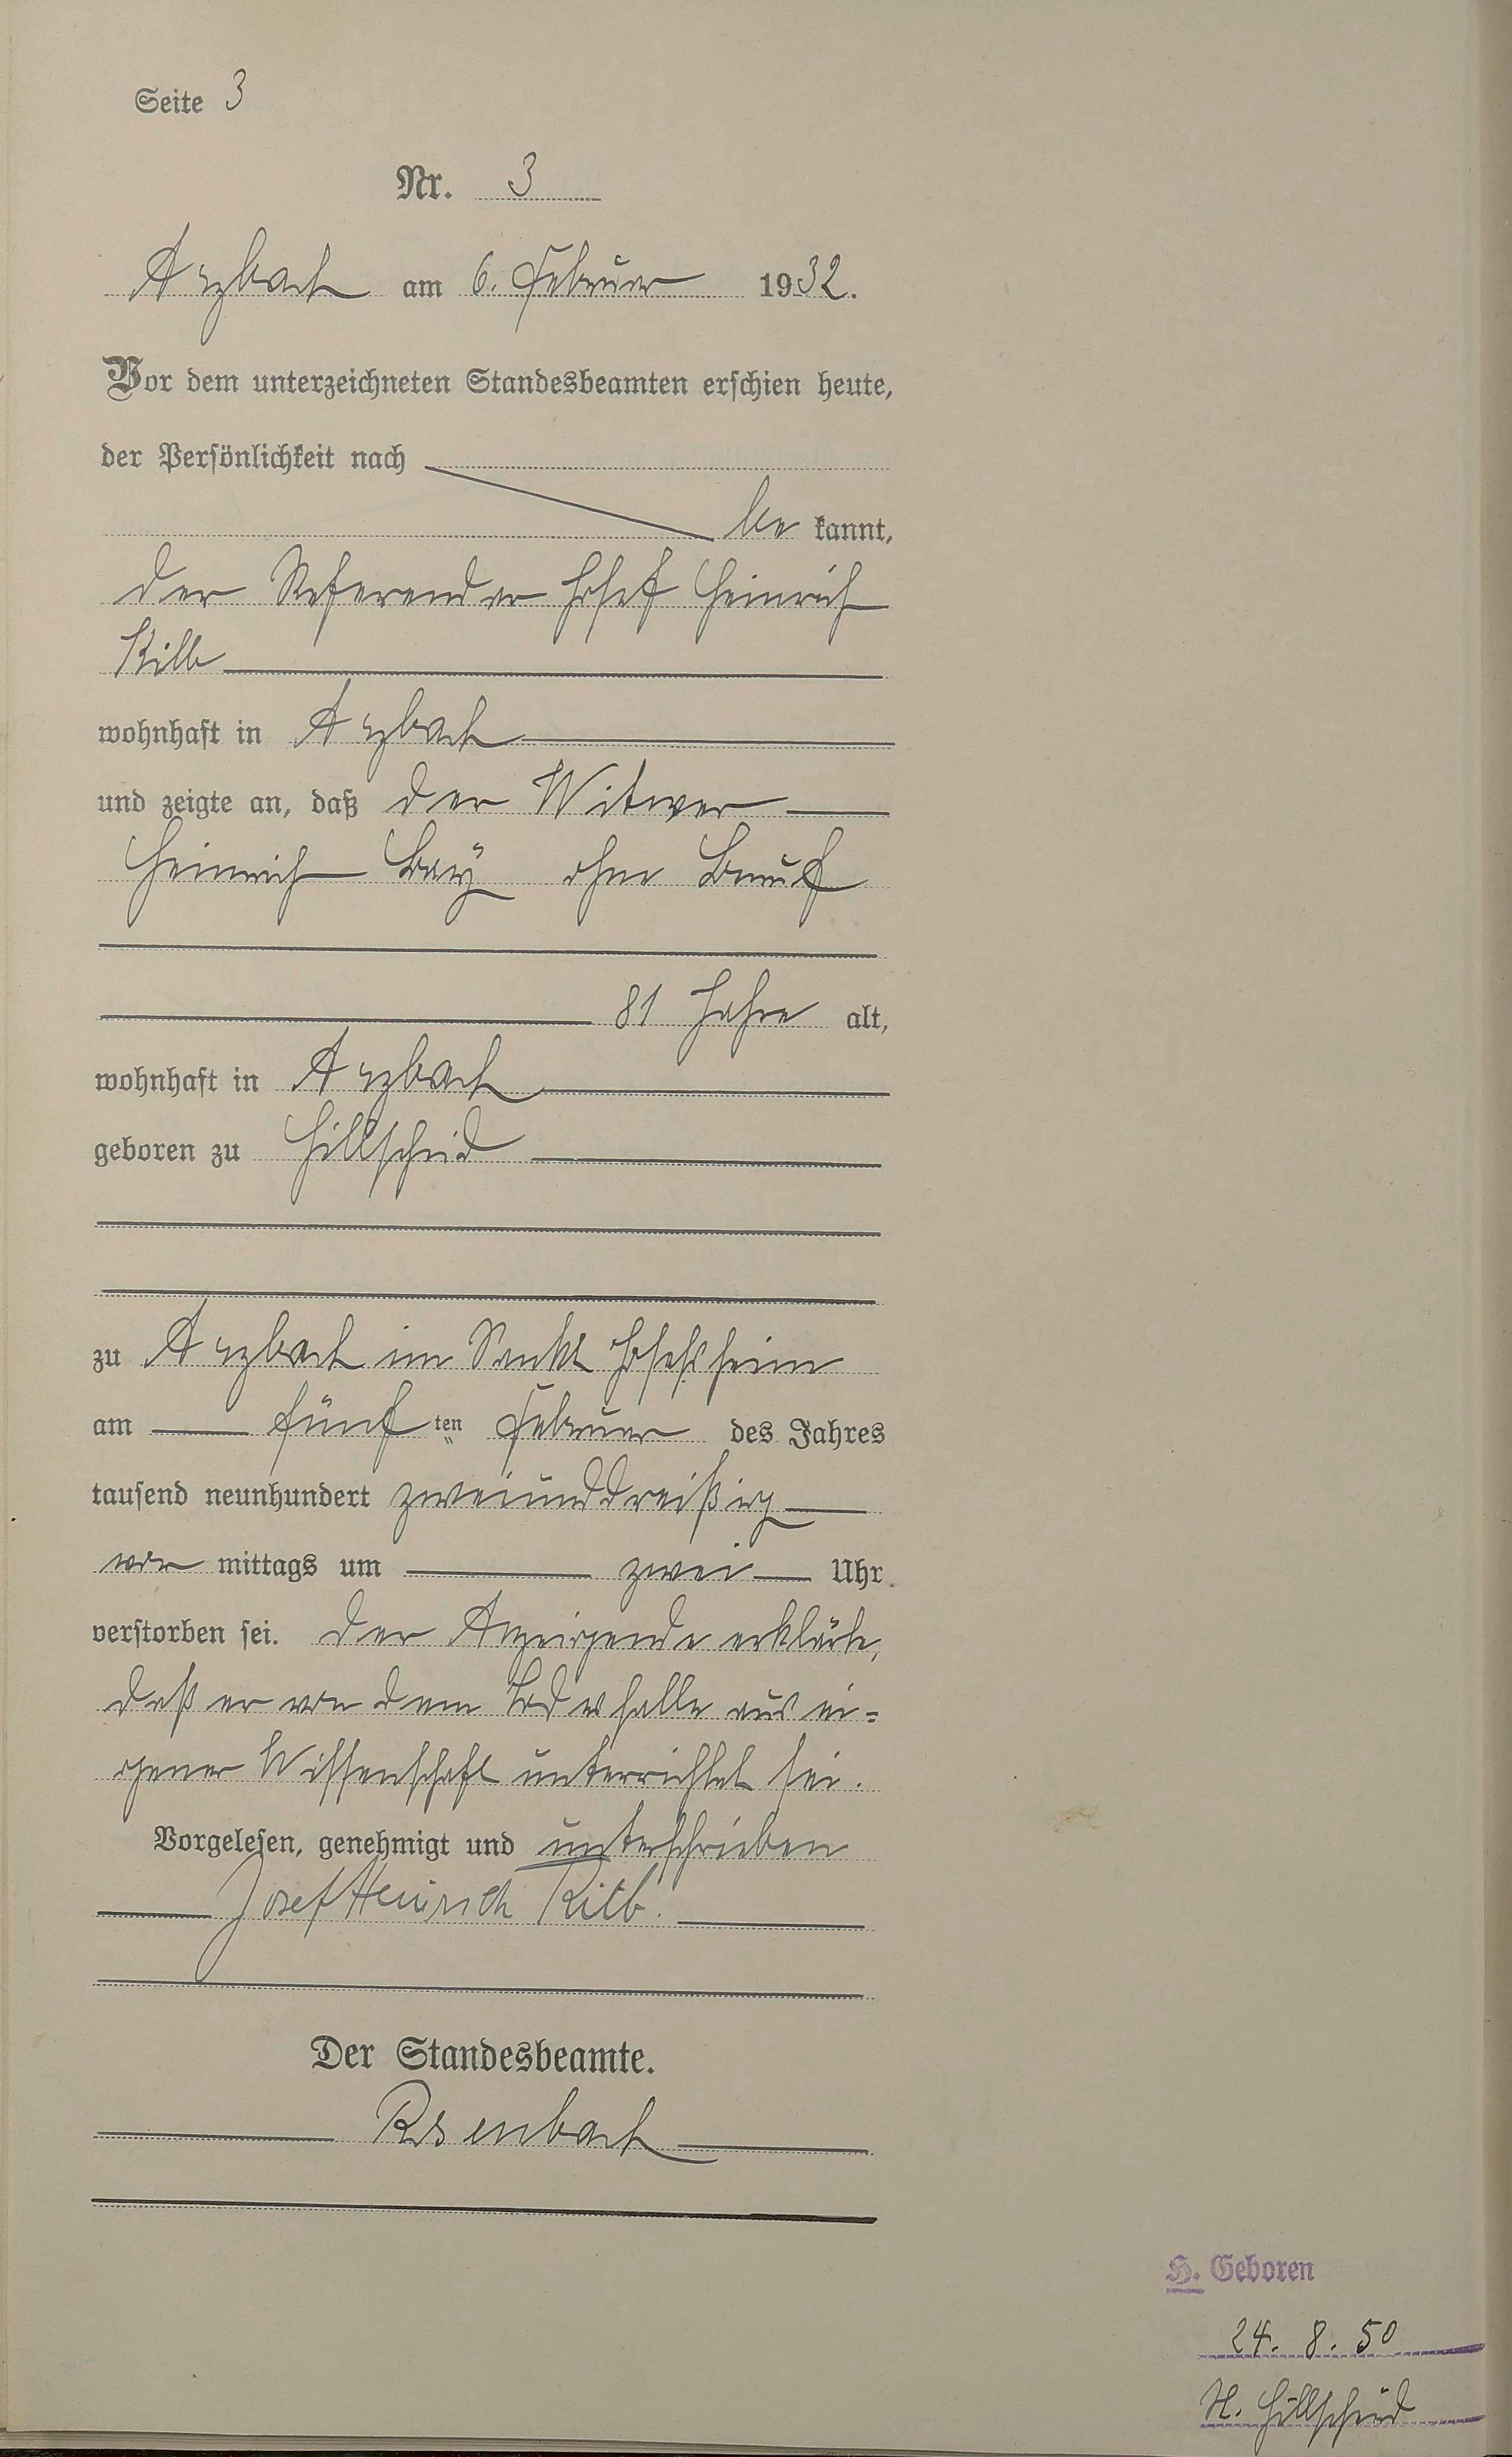 Seite 3
Nr. 3
Arzbach am 6. Februar 1932.
Vor dem unterzeichneten Standesbeamten erschien heute,
der Persönlichkeit nach
be kannt,
der Referendar Josef Heinrich
Kilb
wohnhaft in Arzbach
und zeigte an, daß der Witwer
Heinrich Bay ohne Beruf
81 Jahre alt,
wohnhaft in Arzbach
geboren zu Hillscheid
zu Arzbach im Sankt Josefsheim
am fünf ten Februar des Jahres
tausend neunhundert zweiunddreißig
vor mittags um zwei Uhr
verstorben sei. Der Anzeigende erklärte,
daß er von dem Todesfalle aus ei=
gener Wissenschaft unterrichtet sei.
Vorgelesen, genehmigt und unterschrieben
Josef Heinrich Kilb.
Der Standesbeamte.
Rosenbach
H. Geboren
24. 8. 50
N. Hillscheid